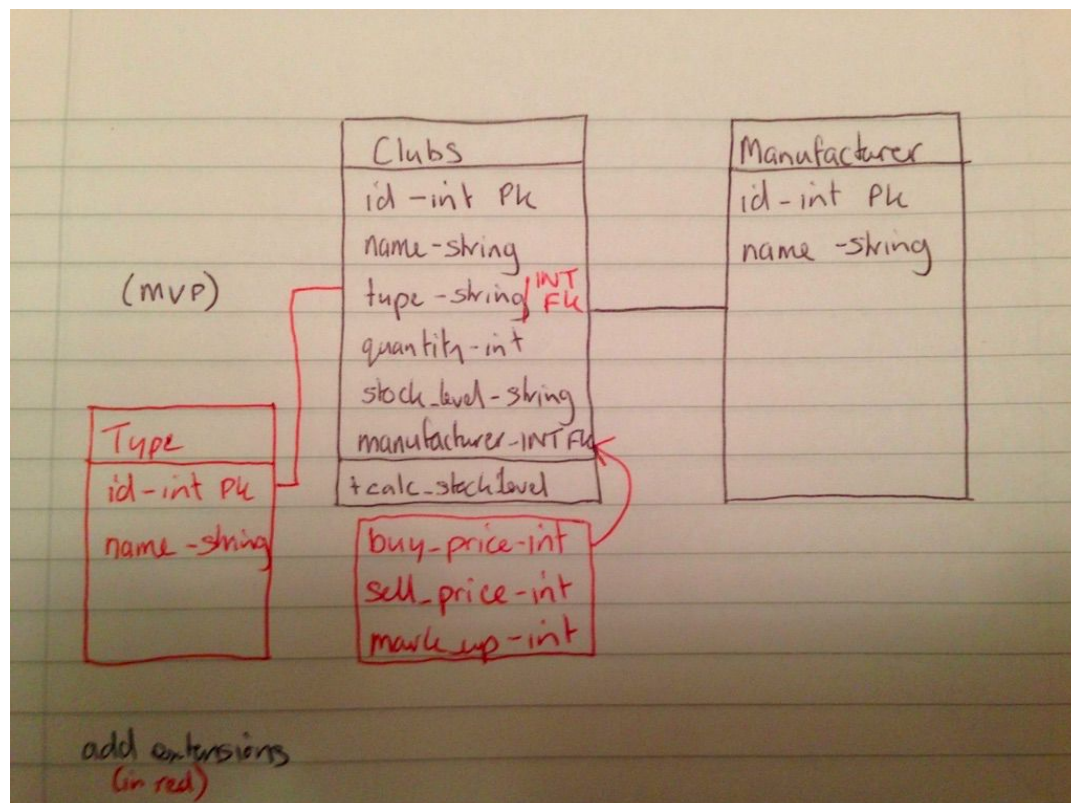 Clubs
id - int PK
name - string
type - string / INT FK
quantity - int
stock_level - string
manufacturer - INT FK
+ calc_stocklevel
Manufacturer
id - int PK
name - string
(MVP)
Type
id - int PK
name - string
buy_price - int
sell_price - int
mark_up - int
add extensions
(in red)